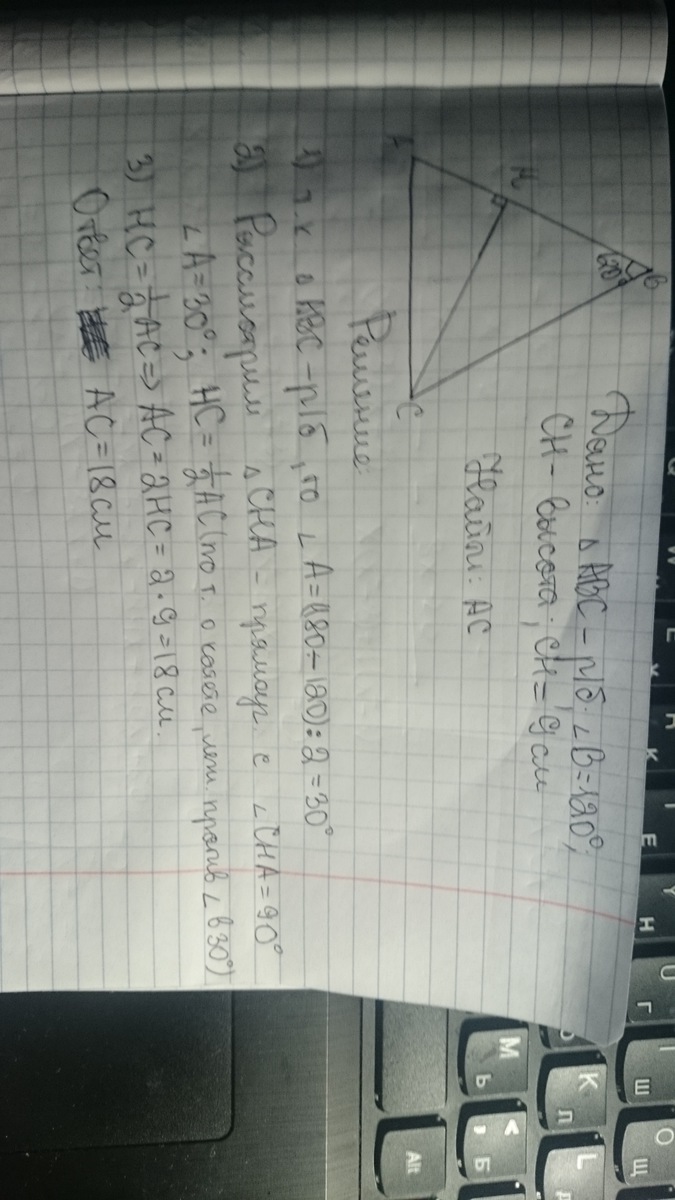 Дано: △ABC - р/б; ∠B=120°;
CH - высота; CH = 9 см
Найти: AC
B
120°
H
A
C
Решение:
1) т.к △ABC - р/б, то ∠A=(180-120):2=30°
2) Рассмотрим △CHA - прямоуг. с ∠CHA=90°
∠A=30°; HC=1/2AC (по т. о катете, леж. против ∠ в 30°)
3) HC=1/2AC⇒AC=2HC=2·9=18см.
Ответ: AC=18см
Q
W
E
R
К
T
Е
Y
Н
U
Г
I
Ш
O
Щ
K
Л
L
Д
M
Ь
<
,
Б
Alt